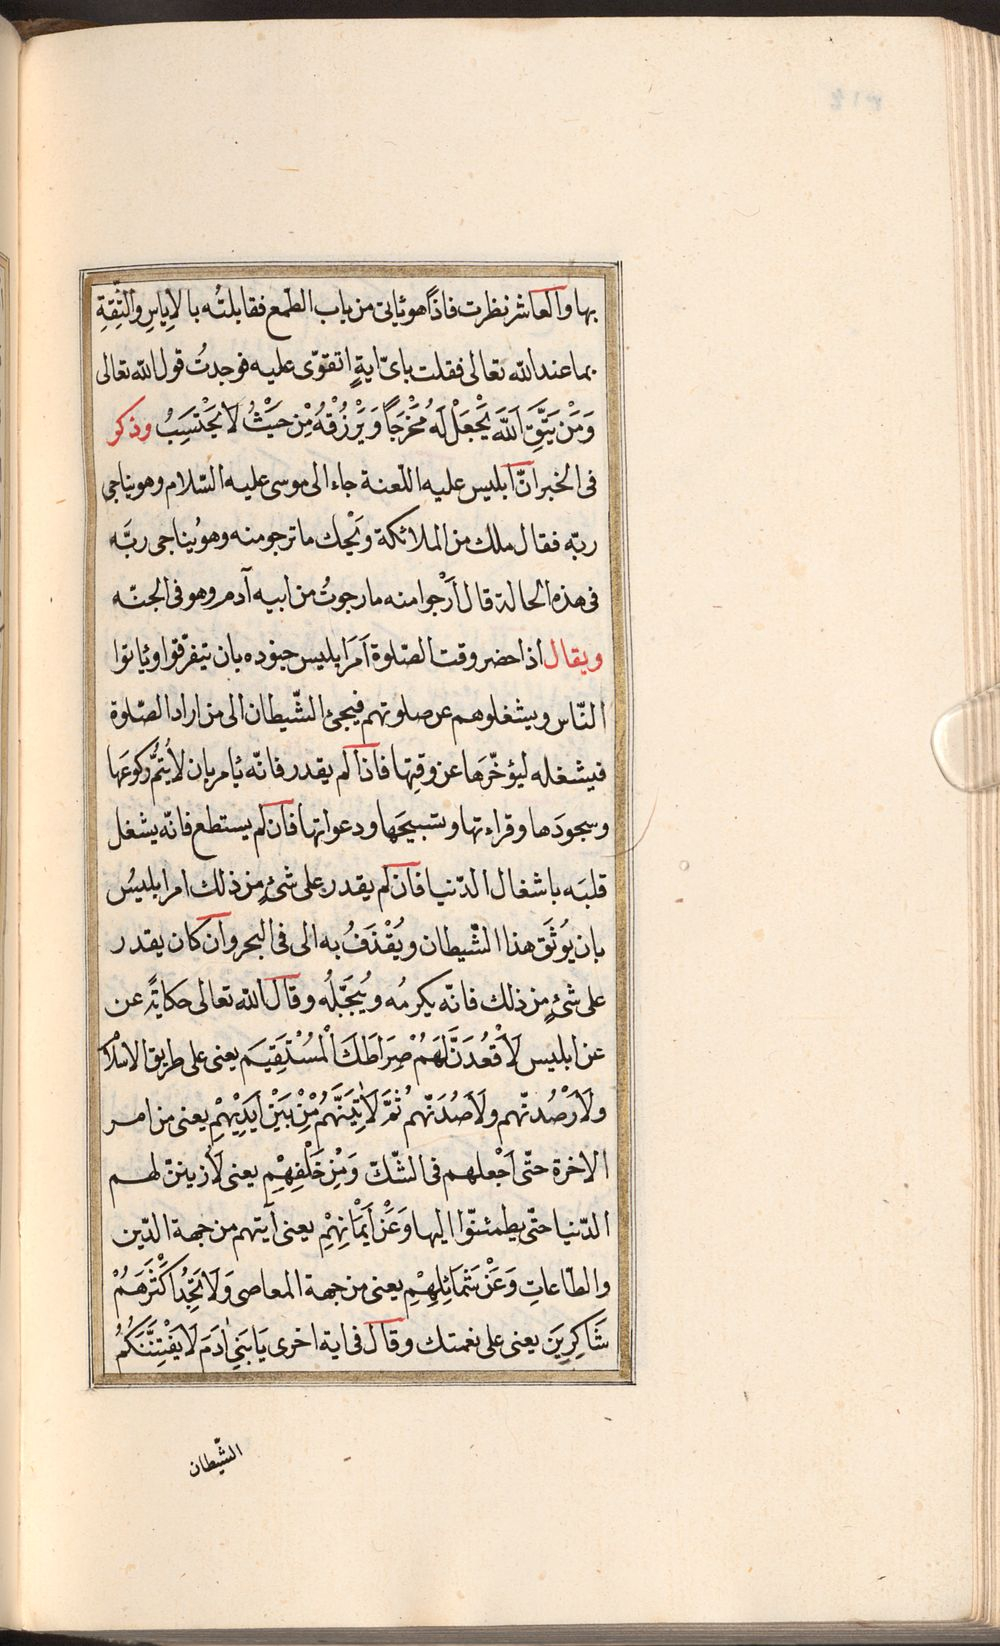 بها والعاشر نظرت فاذا هو يأتى من باب الطمع فقابلتُه بالاِياسِ والثِّقةِ
بما عند الله تعالى فقلت باىّ ايةٍ اتقوّى عليه فوجدتُ قول الله تعالى
وَمَنْ يَتَّقِ اللَّهَ يَجْعَلْ لَهُ مَخْرَجًا وَيَرْزُقْهُ مِنْ حَيْثُ لَا يَحْتَسِبُ وذكر
فى الخبر انّ ابليس عليه اللّعنة جاء الى موسى عليه السّلام وهو يناجى
ربّه فقال ملك من الملائكة وَيْحك ما ترجو منه وهو يُناجى ربَّه
فى هذه الحالة قال اَرْجوا منه ما رجوتُ من ابيه آدم وهو فى الجنّه
ويقال اذا حضر وقت الصّلوة اَمَرَ ابليس جنوده بان يتفرّقوا وياتوا
النّاس ويشغلوهم عن صلوتهم فيجئ الشّيطان الى من اراد الصّلوة
فيشغله ليؤخّرَها عن وقتِها فاذا لم يقدر فانّه يأمر بان لا يُتمَّ ركوعَها
وسجودَها وقراءتها وتسبيحَها ودعواتها فان لم يستطع فانّه يشغل
قلبَه باشغال الدّنيا فان لم يقدر على شئٍ من ذلك امر ابليسُ
بان يُوثَق هذا الشّيطان ويُقْذَفُ به الى فى البحر وان كان يقدر
على شئٍ من ذلك فانّه يكرمُه ويُبَجّلُه وقال الله تعالى حكايةً عن
عن ابليس لَاَقْعُدَنَّ لَهُمْ صِرَاطَكَ الْمُسْتَقِيمَ يعنى على طريق الاسلام
ولَاَرْصُدنّهم ولَاَصُدَنّهم ثُمَّ لَآتِيَنَّهُمْ مِنْ بَيْنِ اَيْدِيهِمْ يعنى من امر
الاخرة حتّى اَجْعلهم فى الشّكّ وَمِنْ خَلْفِهِمْ يعنى لَاُزيننّ لهم
الدّنيا حتّى يطمئنّوا اليها وَعَنْ اَيْمَانِهِمْ يعنى آيتهم من جهة الدّين
والطّاعاتِ وَعَنْ شَمَائِلِهِمْ يعنى من جهة المعاصى وَلَا تَجِدُ اَكْثَرَهُمْ
شَاكِرِينَ يعنى على نعمتك وقال فى اية اخرى يَا بَنِي اٰدَمَ لَا يَفْتِنَنَّكُمُ
الشّيطان